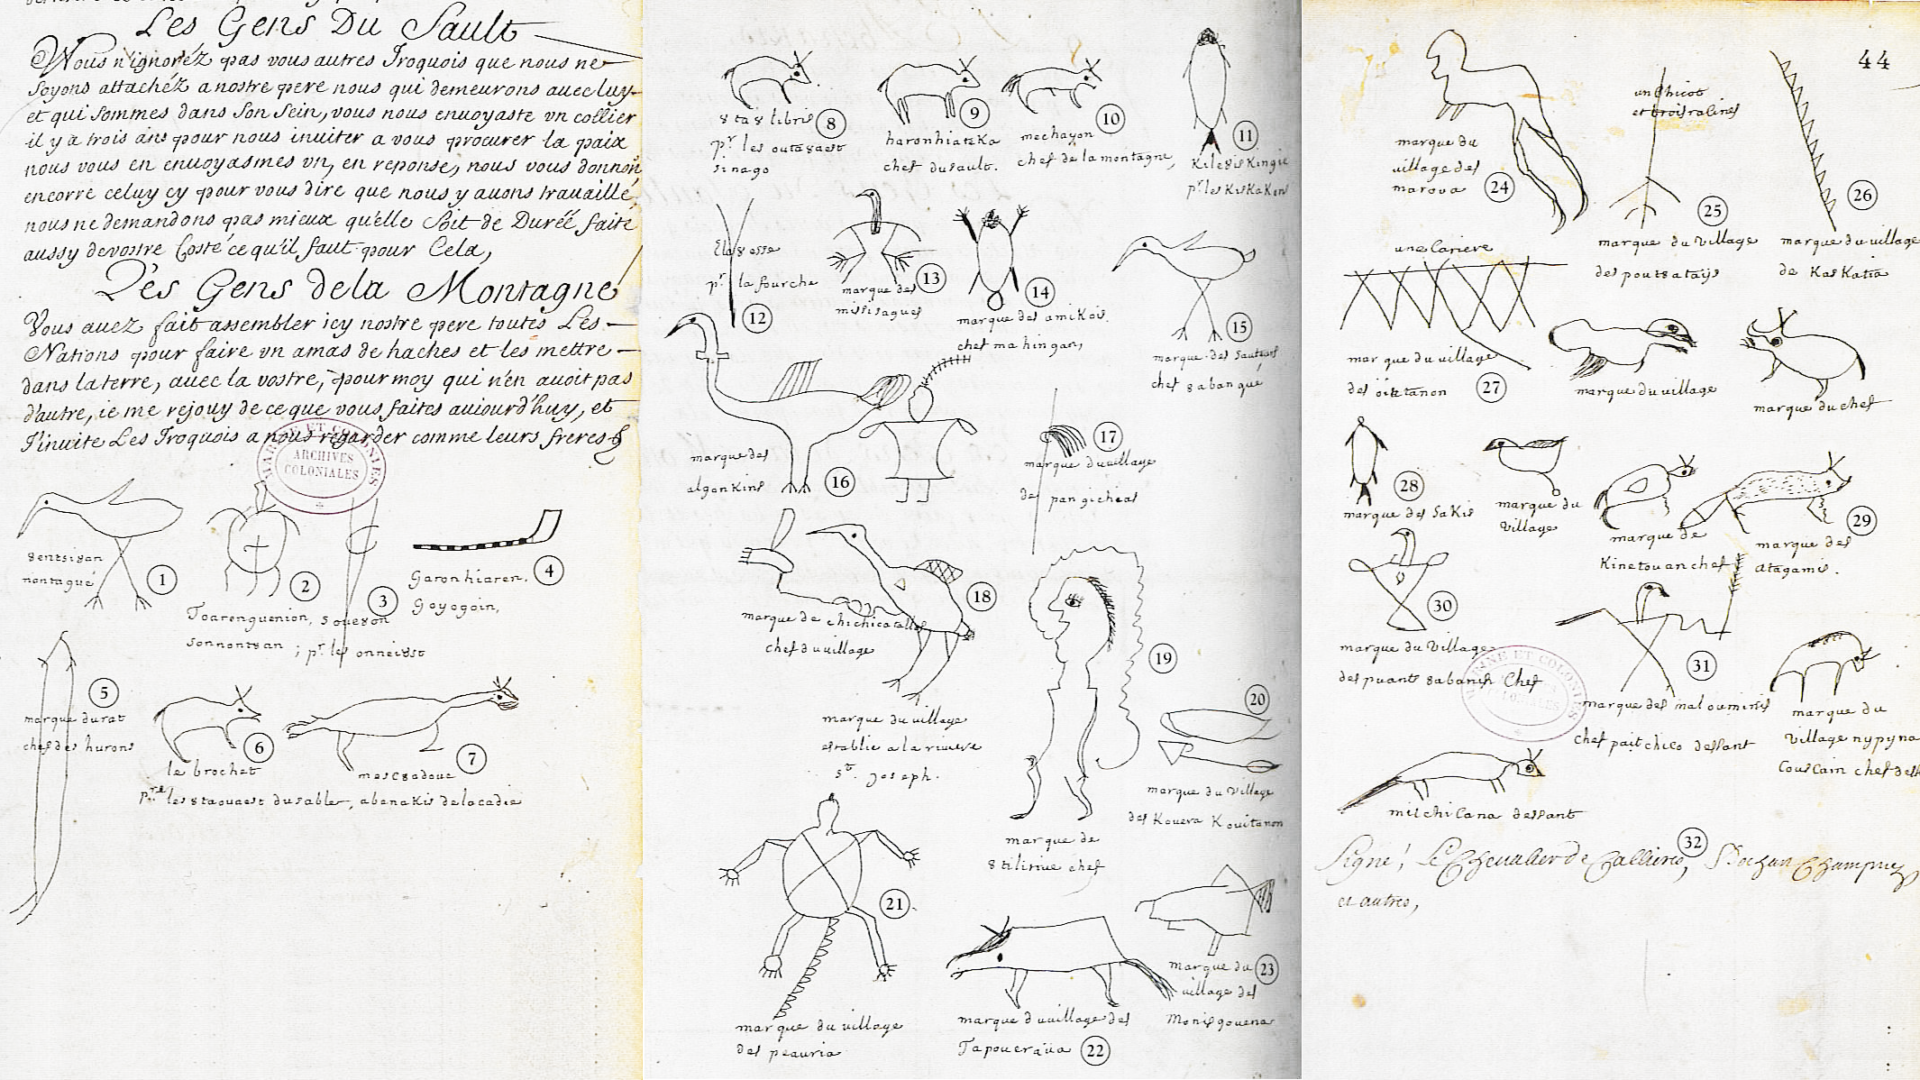 Les Gens Du Sault
Vous n'ignoréz pas vous autres Iroquois que nous ne
soyons attachéz a nostre pere nous qui demeurons avec luy
et qui sommes dans son sein, vous nous envoyaste un collier
il y a trois ans pour nous inviter a vous procurer la paix
nous vous en envoyasmes un, en reponse, nous vous donnon
encorre celuy cy pour vous dire que nous y avons travaillé,
nous ne demandons pas mieux qu'elle soit de Durée faite
aussy de vostre Costé ce qu'il faut pour Cela,
Les Gens de la Montagne
Vous avez fait assembler icy nostre pere toutes Les
Nations pour faire un amas de haches et les mettre
dans la terre, avec la vostre, pour moy qui n'en avoit pas
d'autre, ie me rejouy de ce que vous faites aujourd'huy, et
J'invite Les Iroquois a nous regarder comme leurs freres
MARINE ET COLONIES
ARCHIVES
COLONIALES
8entsi8an
nontagué
1
2
Toarenguenion,
sonnont8an
3
so8e8on
; pr. les onnei8st
4
Garonhiaren,
Goyogoin,
5
marque du rat
chef des hurons
6
le brochet
pr. les 8tao8aest du sable,
7
mesc8adoue
abenakis de lacadie
8
8ta8libris
pr. les outa8aest
sinago
9
haronhiateka
chef du sault.
10
mechayon
chef de la montagne,
11
Kile8iskingie
pr. les KisKaKons
12
Elo8aosse
pr. la fourche
13
marque des
missisagues
14
marque des amikois.
chef mahingan,
15
marque des sauteurs
chef 8abangué
16
marque des
algonkins
17
marque du village
de pangicheas
18
marque de chichicatalle
chef du village
marque du village
establie a la riviere
st. Joseph.
19
marque de
8tilirine chef
20
marque du village
des Kouera Kouitanon
21
marque du village
des peauria
22
marque du village des
Tapoueraüa
23
marque du
village des
Monisgouena
44
24
marque du
village des
maroua
25
un Chicot
et trois racines
marque du Village
des pouteatays
26
marque du village
de KasKatia
27
une Cariere
marque du village
des oiatanon
marque du village
marque du chef
28
marque des SaKis
marque du
village
marque de
Kinetouan chef
29
marque des
atagamis.
30
marque du Village
des puants 8abanis Chef
31
marque des malouminis
chef paitchico dessant
marque du
village nypyna
Couscain chef des
milchilana dessant
32
Signé; Le Chevalier de Callieres,
et autres,